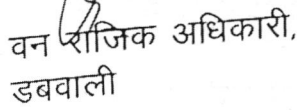 वन राजिक अधिकारी,
डबवाली